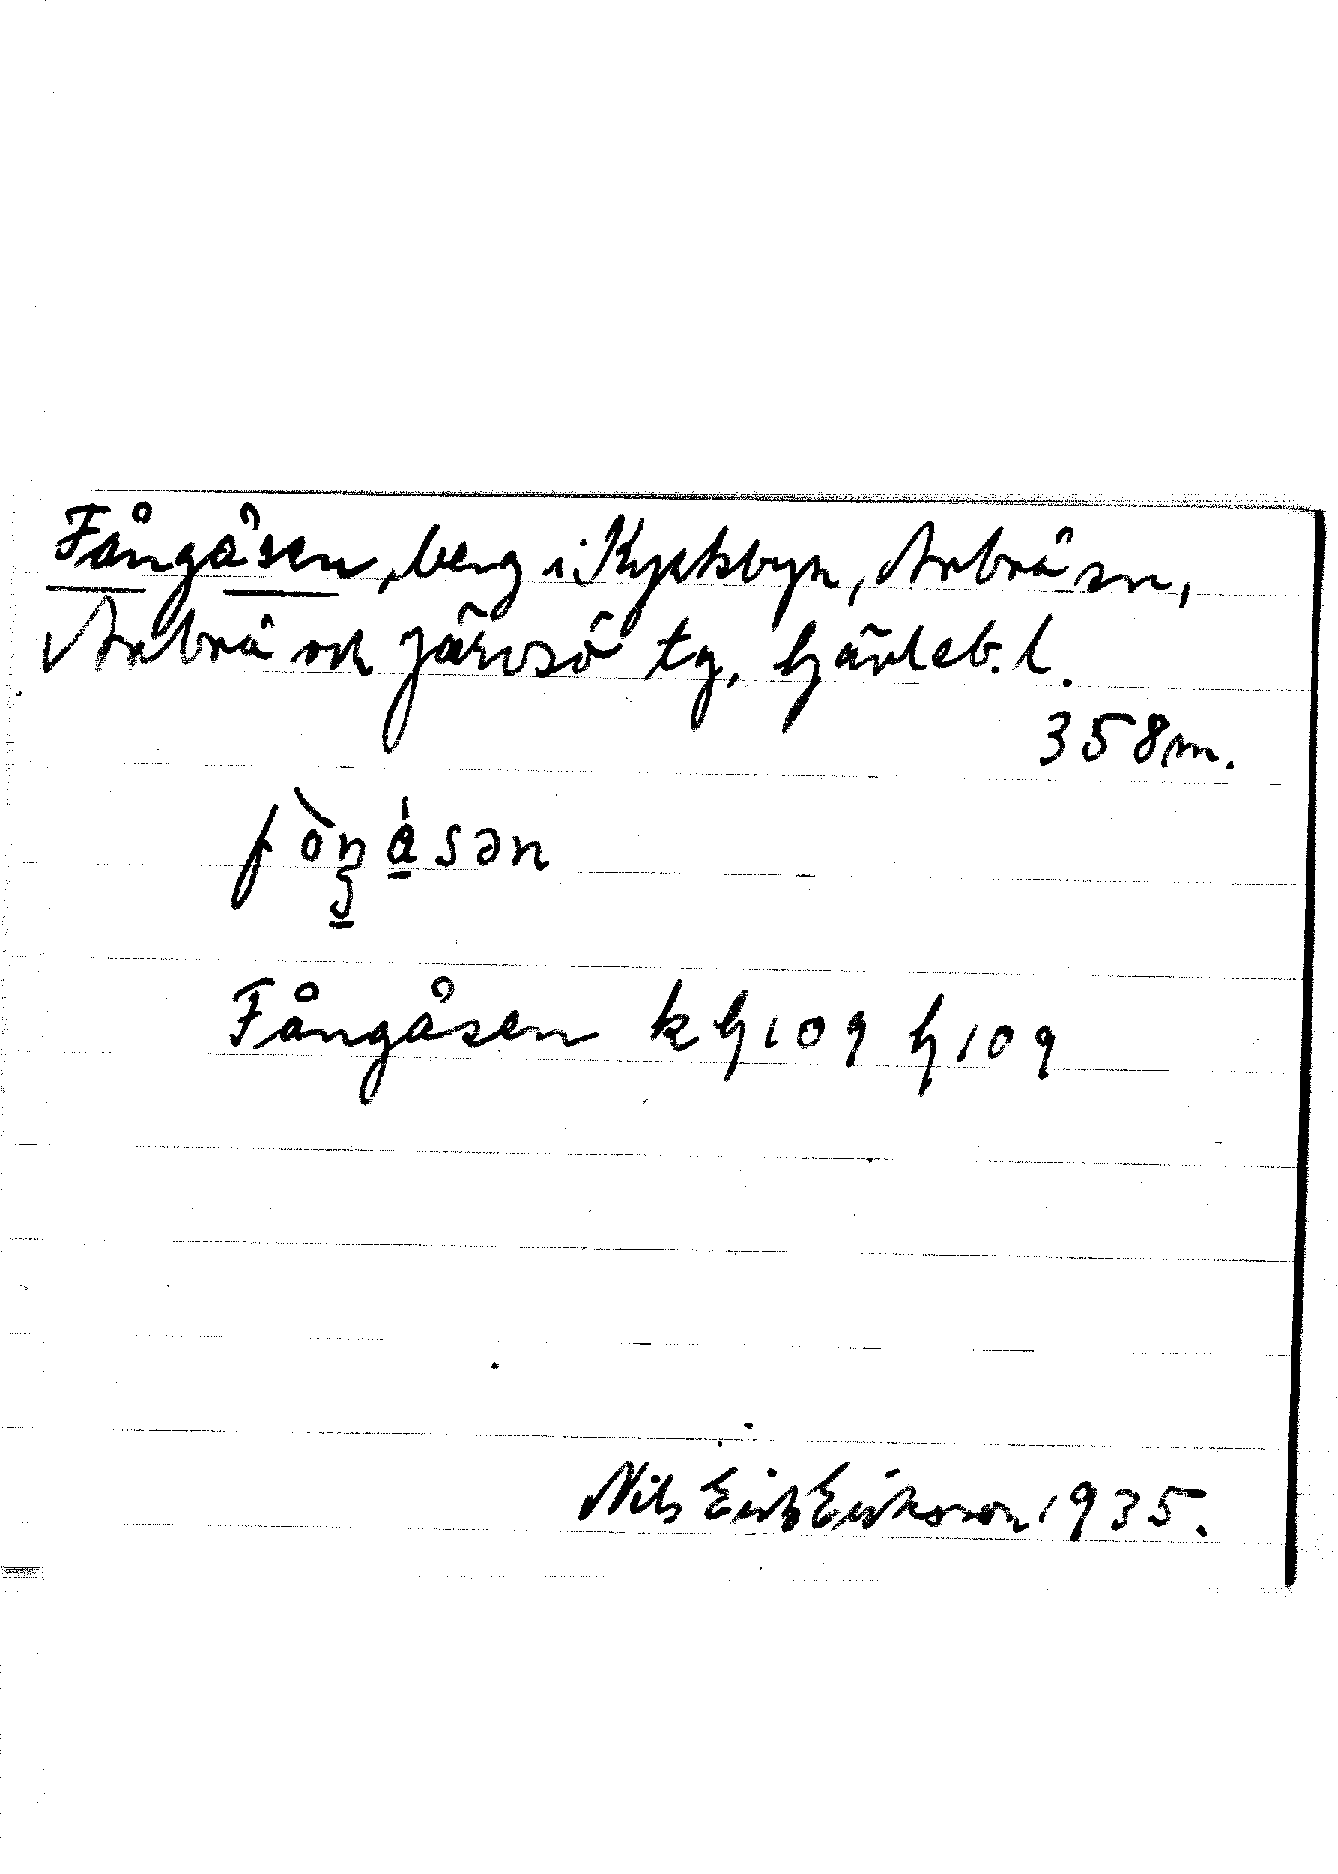 Fångåsen, berg i Kyrkbyn, Arbrå sn,
Arbrå och Järvsö tg, Gävleb. l.
358 m.
fòŋásən
Fångåsen k G 109 G 109
Nils Erik Eriksson 1935.